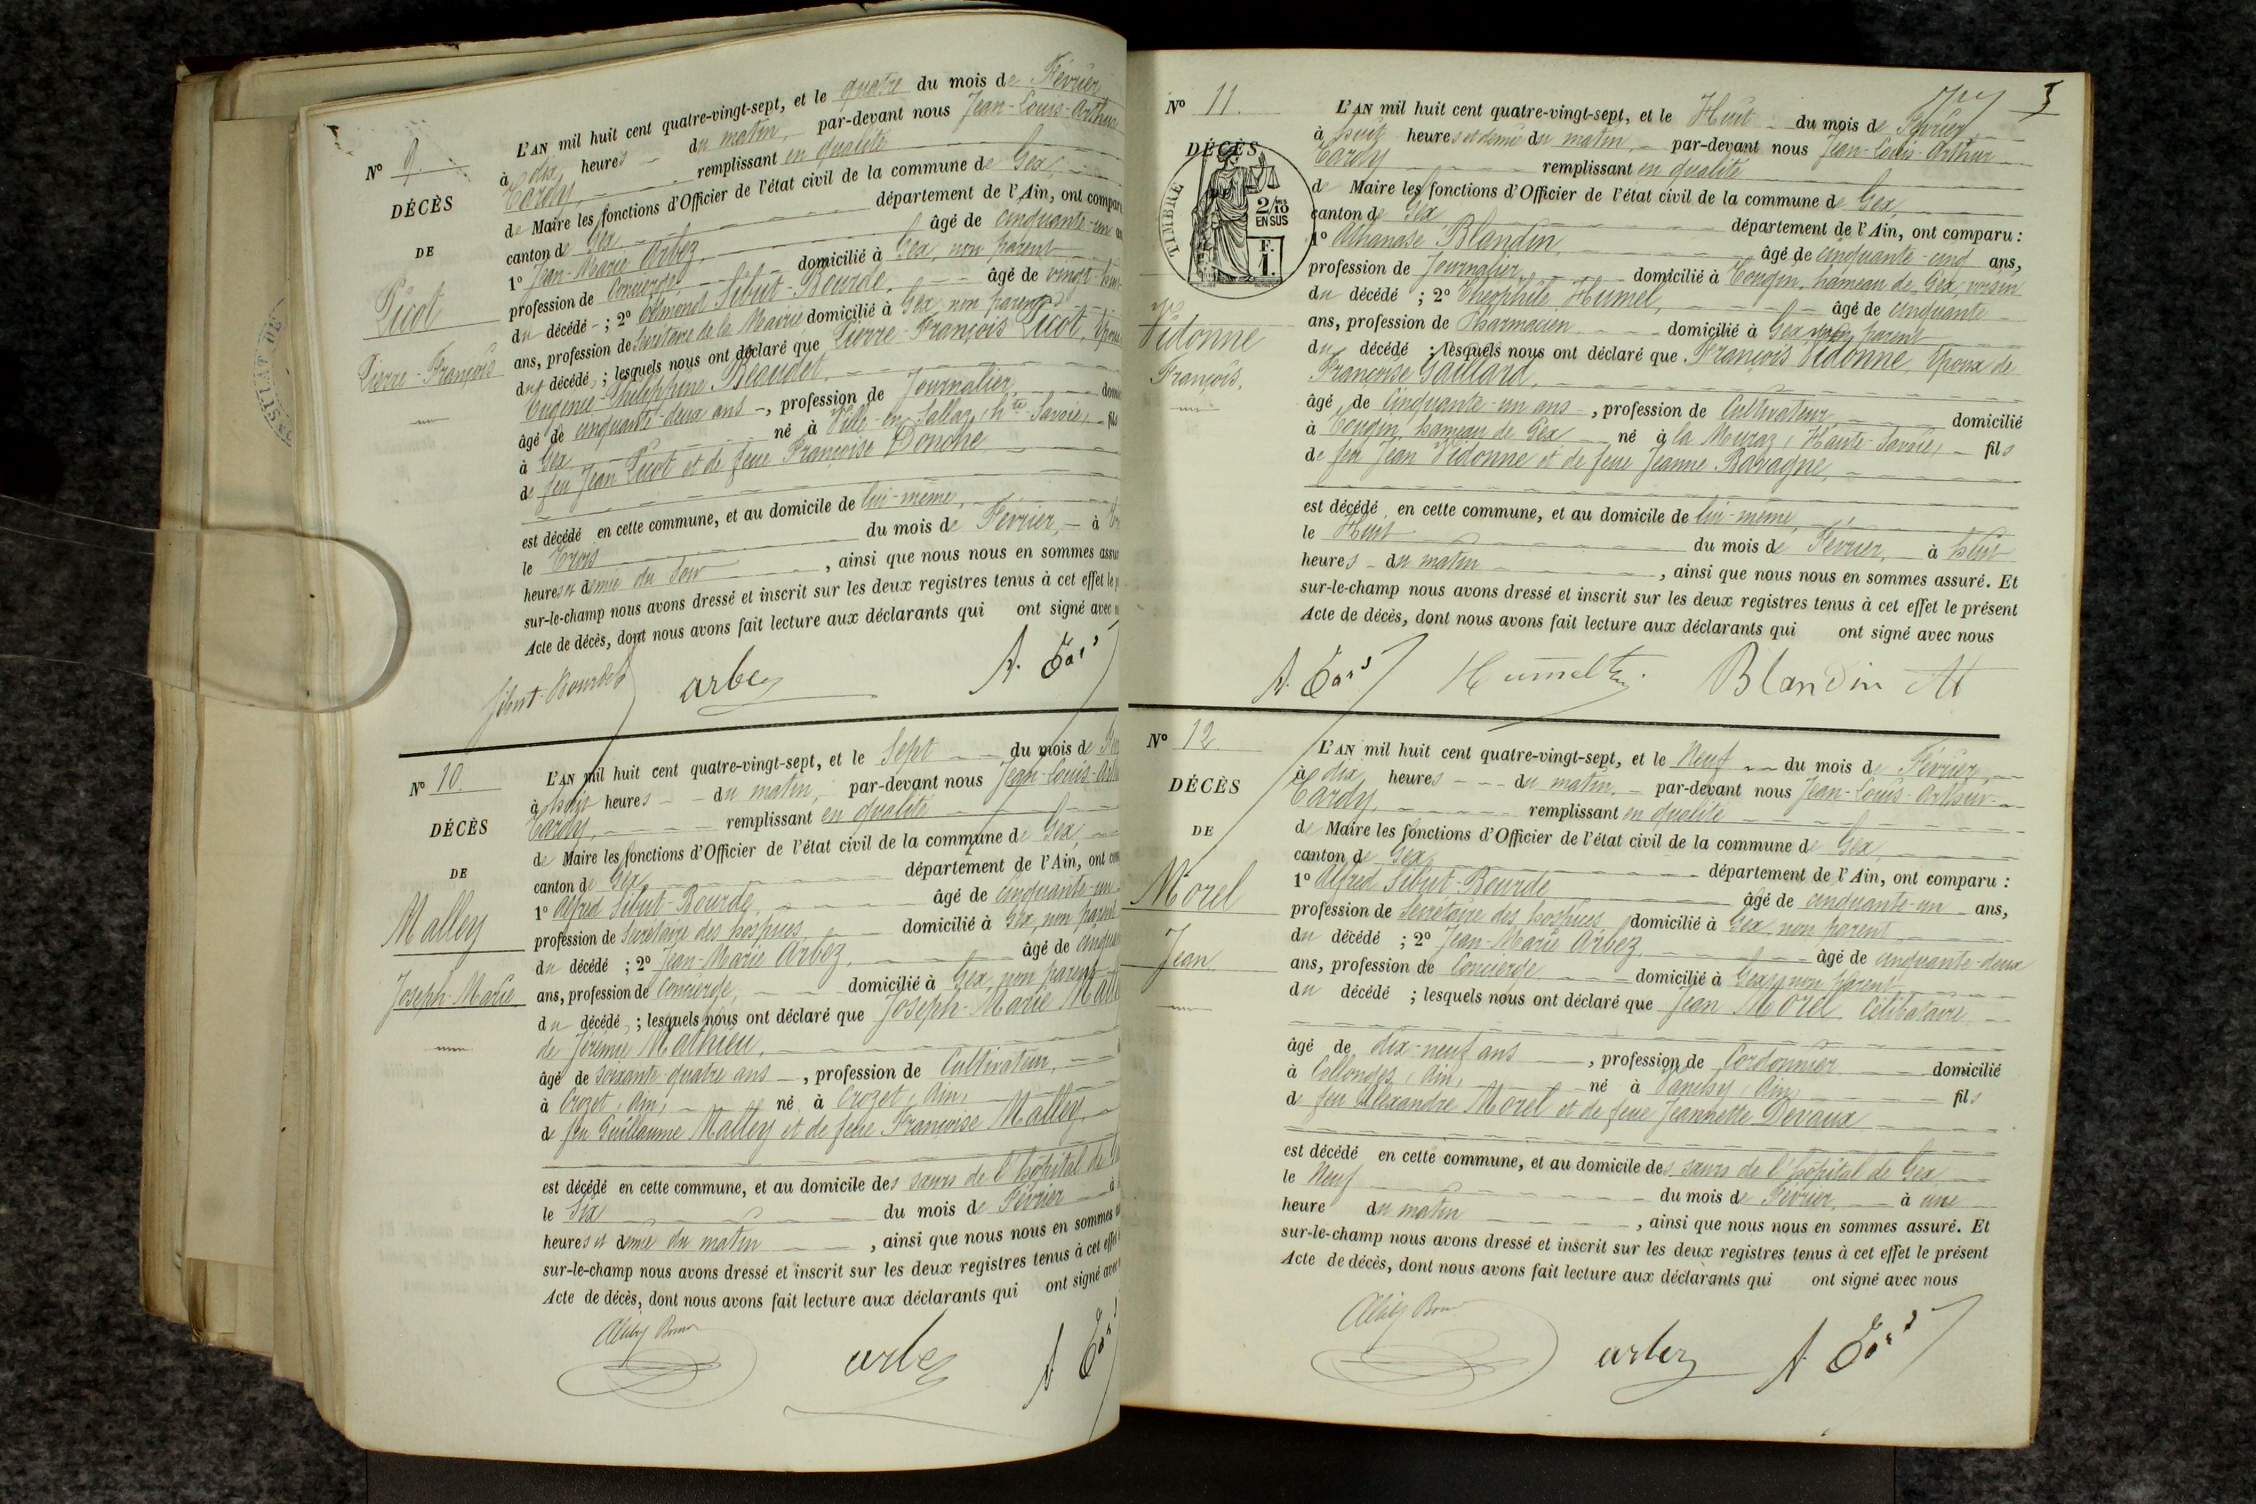 N° 9.
DÉCÈS
DE
Picot
Pierre-François
L'AN mil huit cent quatre-vingt-sept, et le quatre du mois de Février
à dix heures du matin, par-devant nous Jean-Louis-Arthur
Tardy, remplissant en qualité
de Maire les fonctions d'Officier de l'état civil de la commune de Gex,
canton de Gex département de l'Ain, ont compar
1° Jean-Marie Arbez, âgé de cinquante-un
profession de Concierge domicilié à Gex, non parent
du décédé ; 2° Edmond Sibut-Bourde, âgé de vingt
ans, profession de Secrétaire de la Mairie domicilié à Gex non parent
du décédé ; lesquels nous ont déclaré que Pierre-François Picot, Epoux
Eugénie Philippine Beaudet,
âgé de cinquante-deux ans, profession de Journalier, domi
à Gex né à Ville-en-Sallaz, hte Savoie, fils
de feu Jean Picot et de feue Françoise Donche
est décédé en cette commune, et au domicile de lui-même,
le Trois du mois de Février, à
heures et demie du soir, ainsi que nous nous en sommes assu
sur-le-champ nous avons dressé et inscrit sur les deux registres tenus à cet effet le p
Acte de décès, dont nous avons fait lecture aux déclarants qui ont signé avec
Sibut-Bourde arbez A. Tardy
N° 10.
DÉCÈS
DE
Malley
Joseph-Marie
L'AN mil huit cent quatre-vingt-sept, et le Sept du mois de
à huit heures du matin, par-devant nous Jean-Louis-Art
Tardy, remplissant en qualité
de Maire les fonctions d'Officier de l'état civil de la commune de Gex,
canton de Gex département de l'Ain, ont com
1° Alfred Sibut-Bourde, âgé de cinquante-un
profession de Secrétaire des hospices domicilié à Gex, non parent
du décédé ; 2° Jean-Marie Arbez, âgé de cinquan
ans, profession de Concierge, domicilié à Gex, non parent
du décédé ; lesquels nous ont déclaré que Joseph-Marie Malle
de Jérémie Mathieu,
âgé de soixante-quatre ans, profession de Cultivateur,
à Crozet, Ain, né à Crozet, Ain,
de feu Guillaume Malley et de feue Françoise Malley,
est décédé en cette commune, et au domicile des sœurs de l'hôpital de G
le Six du mois de Février à
heures et demie du matin, ainsi que nous nous en sommes
sur-le-champ nous avons dressé et inscrit sur les deux registres tenus à cet effet
Acte de décès, dont nous avons fait lecture aux déclarants qui ont signé avec
arbez A Tardy
5
N° 11.
DÉCÈS
TIMBRE
2/10
EN SUS
Vidonne
François.
L'AN mil huit cent quatre-vingt-sept, et le Huit du mois de Février,
à huit heures et demie du matin, par-devant nous Jean-Louis-Arthur
Tardy remplissant en qualité
de Maire les fonctions d'Officier de l'état civil de la commune de Gex,
canton de Gex département de l'Ain, ont comparu :
1° Athanase Blandin, âgé de cinquante-cinq ans,
profession de Journalier, domicilié à Tougin, hameau de Gex, voisin
du décédé ; 2° Théophile Humel, âgé de cinquante
ans, profession de Pharmacien domicilié à Gex, non parent
du décédé ; lesquels nous ont déclaré que François Vidonne, Epoux de
Françoise Gaillard,
âgé de Cinquante-un ans, profession de Cultivateur, domicilié
à Tougin, hameau de Gex né à la Muraz, Haute-Savoie, fils
de feu Jean Vidonne et de feue Jeanne Ravagne,
est décédé en cette commune, et au domicile de lui-même,
le Huit du mois de Février, à huit
heures du matin, ainsi que nous nous en sommes assuré. Et
sur-le-champ nous avons dressé et inscrit sur les deux registres tenus à cet effet le présent
Acte de décès, dont nous avons fait lecture aux déclarants qui ont signé avec nous
A. Tardy Hummel Blandin At
N° 12.
DÉCÈS
DE
Morel
Jean
L'AN mil huit cent quatre-vingt-sept, et le Neuf du mois de Février,
à dix heures du matin, par-devant nous Jean-Louis-Arthur
Tardy, remplissant en qualité
de Maire les fonctions d'Officier de l'état civil de la commune de Gex
canton de Gex département de l'Ain, ont comparu :
1° Alfred Sibut-Bourde âgé de cinquante-un ans,
profession de Secrétaire des hospices domicilié à Gex, non parent
du décédé ; 2° Jean-Marie Arbez, âgé de cinquante-deux
ans, profession de Concierge domicilié à Gex, non parent
du décédé ; lesquels nous ont déclaré que Jean Morel Célibataire
âgé de dix-neuf ans, profession de Cordonnier domicilié
à Collonges, Ain, né à Vanchy, Ain, fils
de feu Alexandre Morel et de feue Jeannette Devaux
est décédé en cette commune, et au domicile des sœurs de l'hôpital de Gex
le Neuf du mois de Février, à une
heure du matin, ainsi que nous nous en sommes assuré. Et
sur-le-champ nous avons dressé et inscrit sur les deux registres tenus à cet effet le présent
Acte de décès, dont nous avons fait lecture aux déclarants qui ont signé avec nous
arbez A Tardy